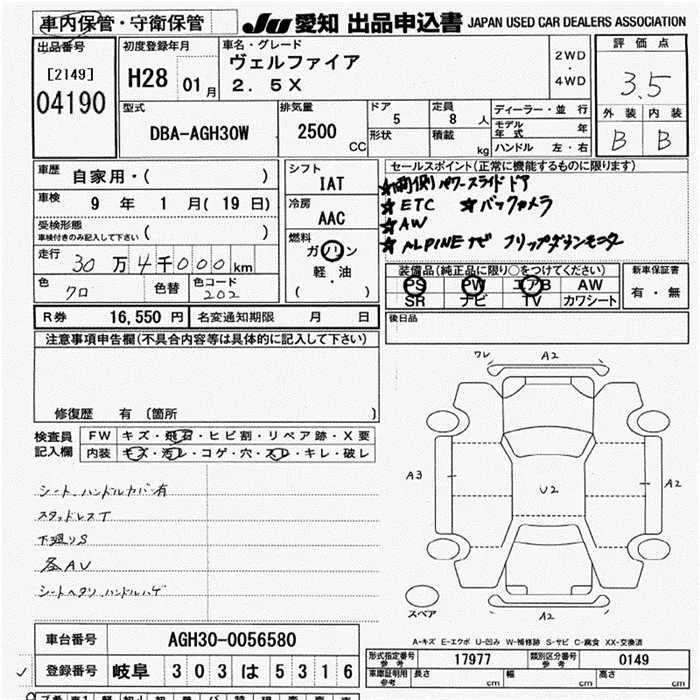 車内保管・守衛保管 JU 愛知 出品申込書 JAPAN USED CAR DEALERS ASSOCIATION
出品番号 [2149] 04190
初度登録年月 H28 01月
車名・グレード ヴェルファイア 2.5X
2WD・4WD
評価点 3.5
外装 内装
B B
型式 DBA-AGH30W
排気量 2500 CC
ドア 5 形状
定員 8人 積載 kg
ディーラー・並行
モデル年式 年
ハンドル 左・右
車歴 自家用・( )
車検 9年 1月(19日)
受検形態 車検付きのみ記入して下さい ( )
走行 30万4千000km
色 クロ 色替 色コード 202
シフト IAT
冷房 AAC
燃料 ガソリン 軽・油 ( )
セールスポイント(正常に機能するものに限ります)
★両側パワースライドドア
★ETC ★バックカメラ
★AW
★ALPINEナビ フリップダウンモニター
装備品(純正品に限り○をつけてください)
PS PW エアB AW
SR ナビ TV カワシート
新車保証書 有・無
R券 16,550円 名変通知期限 月 日
後日品
注意事項申告欄(不具合内容等は具体的に記入して下さい)
修復歴 有 〔箇所 〕
検査員記入欄
FW キズ・飛石・ヒビ割・リペア跡・X要
内装 キズ・汚レ・コゲ・穴・スレ・キレ・破レ
シート、ハンドルカバー有
スタッドレスT
下廻りS
各AU
シートヘタリ ハンドルハゲ
ワレ A2
A3 U2 A2
スペア A2
A-キズ E-エクボ U-凹み W-補修跡 S-サビ C-腐食 XX-交換済
車台番号 AGH30-0056580
登録番号 岐阜 303 は 5316
形式指定番号 参考 17977 類別区分番号 参考 0149
車庫証明用 参考 長さ cm 幅 cm 高さ cm